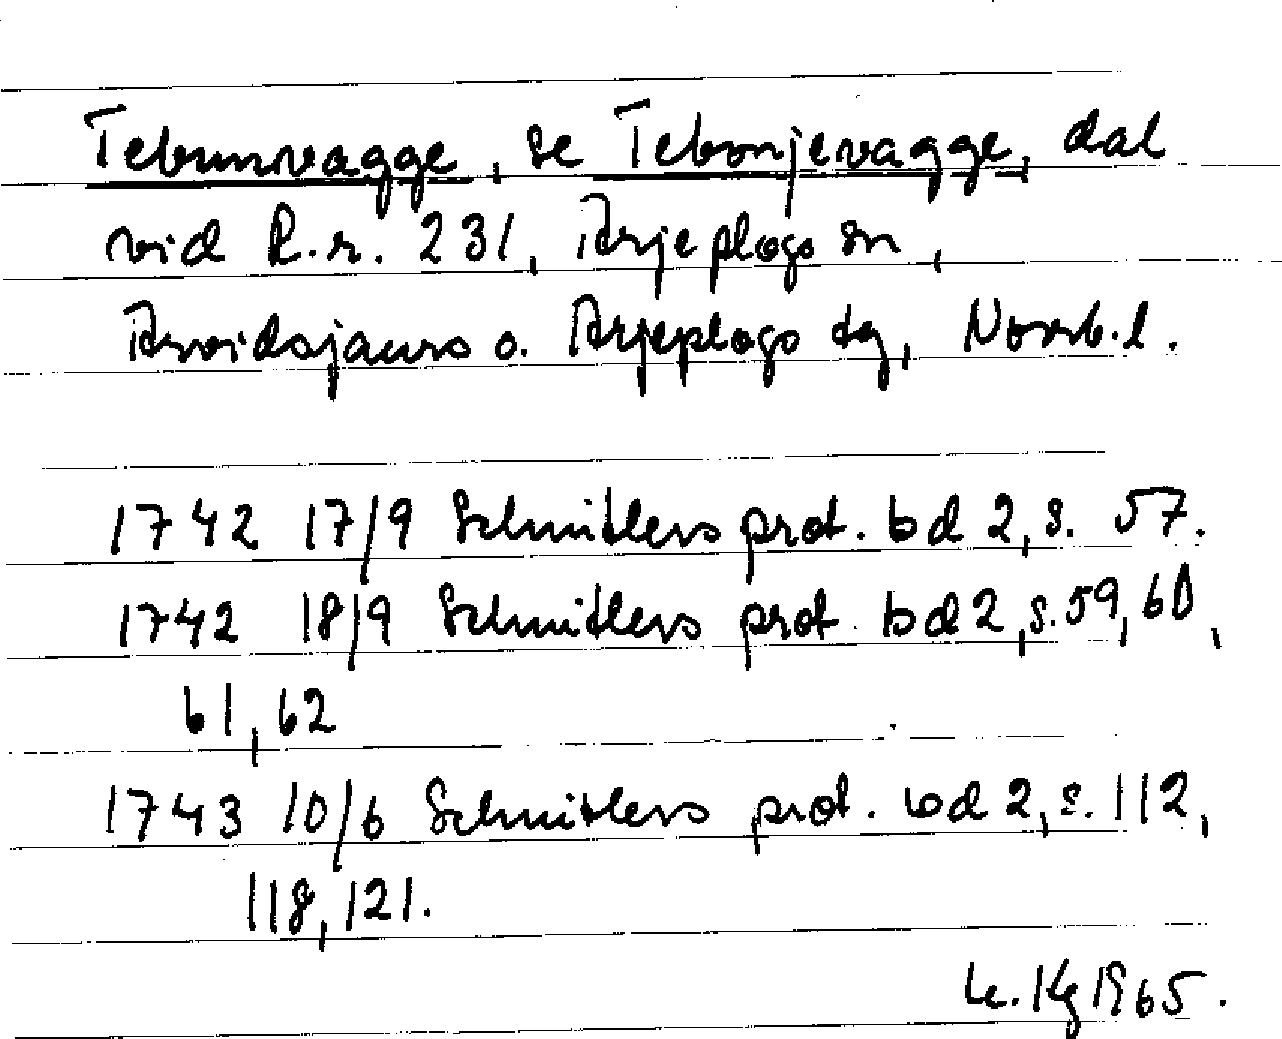 Tebunvagge, se Tebonjevagge, dal
vid R.r. 231, Arjeplogs sn,
Arvidsjaurs o. Arjeplogs tg, Norrb.l.
1742 17/9 Schnitlers prot. bd 2, s. 57.
1742 18/9 Schnitlers prot. bd 2, s. 59, 60,
61, 62
1743 10/6 Schnitlers prot. bd 2, s. 112,
118, 121.
Kg 1965.